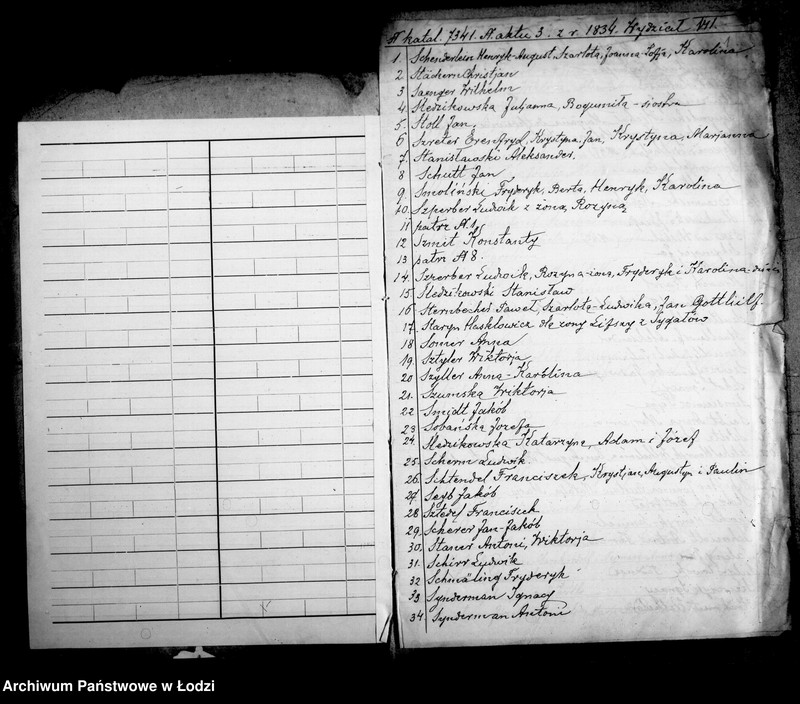 N katal. 7341. N. aktu 3. z r. 1834. Wydział VII.
1. Schenderlein Henryk-August, Szarlota, Joanna-Zofja, Karolina
2. Städtern Christjan
3 Saenger Wilhelm
4. Śledzikowska Juljanna, Bogumiła - siostra
5. Stoll Jan,
6 Szreter Erenfryd, Krystyna, Jan, Krystyna, Marjanna
7. Stanisławski Aleksander.
8 Schutt Jan
9 Smoliński Fryderyk, Berta, Henryk, Karolina
10. Szperber Ludwik z żoną Rozyną
11 patrz N. 1,
12 Szmit Konstanty
13 patrz N 8.
14. Szperber Ludwik, Rozyna-żona, Fryderyk i Karolina-dzieci
15. Śledzikowski Stanisław
16 Sternbecher Paweł, Szarlotą-Ludwika, Jan Gottlieb.
17. Staryn Hasklowicz dla żony Lifszy z Tygałów
18 Somer Anna
19. Sztyler Wiktorja
20 Szyller Anna-Karolina
21. Szumska Wiktorja
22 Smidt Jakób
23 Sobańska Józefa
24. Śledzikowska Katarzyna, Adam i Józef
25. Scherm Ludwik.
26. Schtendel Franciszek, Krystjan, Augustyn i Paulin
27. Seyb Jakób
28 Franciszek
29. Scherer Jan-Jakób
30. Stawer Antoni, Wiktorja
31. Schirr Ludwik
32 Schmäling Fryderyk
33 Synderman Ignacy
34 Synderman Antoni
Archiwum Państwowe w Łodzi